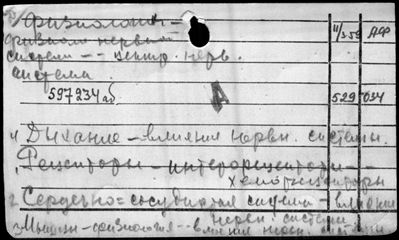 Физиология –
физиол. нервной
системы -- центр. нерв. 11/3.59 АФ
система
597234аб А 529 034
1) Дыхание – влияния нервн. системы.
Рецепторы – интерорецепторы –
хеморецепторы
2) Сердечно=сосудистая система – влияние
нервн. системы
3) Мышцы – физиология -- влияния нерв. системы